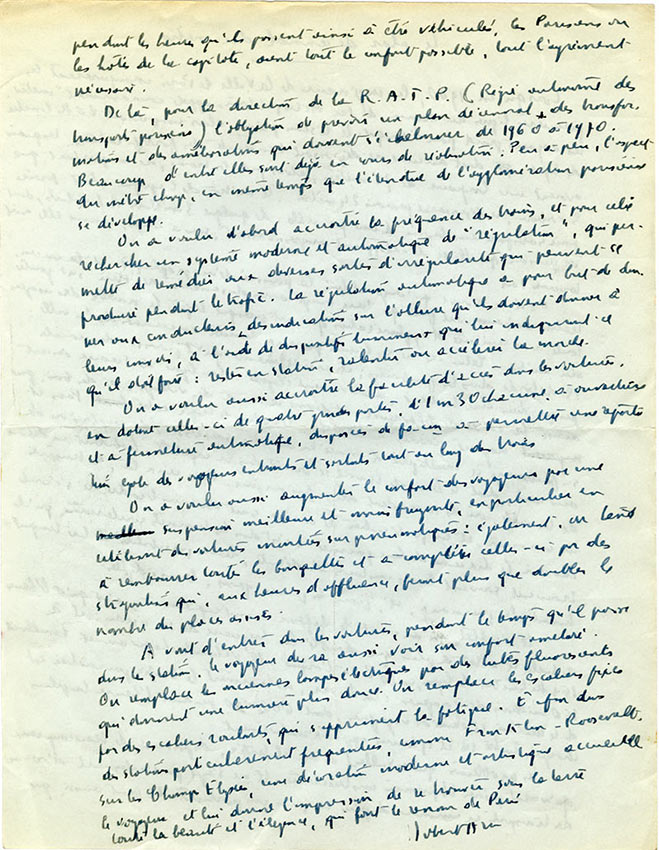 pendant les heures qu'ils passent ainsi à être véhiculés, les Parisiens ou
les hôtes de la capitale, aient tout le confort possible, tout l'agrément
nécessaire.
De là, pour la direction de la R.A.T.P. (Régie autonome des
transports parisiens) l'obligation de prévoir un plan d'ensemble des transfor-
mations et des améliorations qui doivent s'échelonner de 1960 à 1970.
Beaucoup d'entre elles sont déjà en cours de réalisation. Peu à peu, l'aspect
du métro change, en même temps que l'étendue de l'agglomération parisienne
se développe.
On a voulu d'abord accroître la fréquence des trains, et pour cela
rechercher un système moderne et automatique de "régulation", qui per-
mette de remédier aux diverses sortes d'irrégularité qui peuvent se
produire pendant le trafic. La régulation automatique a pour but de don-
ner aux conducteurs des indications sur l'allure qu'ils doivent donner à
leurs convois, à l'aide de dispositifs lumineux qui lui indiquent ce
qu'il doit faire : rester en station, ralentir ou accélérer la marche.
On a voulu aussi accroître la faculté d'accès dans les voitures,
en dotant celles-ci de quatre grandes portes, d'1 m 30 chacune, à ouverture
et à fermeture automatique, disposées de façon à permettre une réparti-
tion égale de voyageurs entrants et sortants tout au long du train
On a voulu aussi augmenter le confort des voyageurs par une
suspension meilleure et moins fruyante, en particulier en
utilisant des voitures montées sur pneumatiques : également, on tend
à rembourrer toutes les banquettes et à compléter celles-ci par des
strapontins qui, aux heures d'affluence, feront plus que doubler le
nombre des places assises.
Avant d'entrer dans les voitures, pendant le temps qu'il passe
dans la station, le voyageur devra aussi voir son confort amélioré.
On remplace les anciennes lampes électriques par des tubes fluorescents
qui donnent une lumière plus douce. On remplace les escaliers fixes
par des escaliers roulants, qui suppriment la fatigue. Et enfin dans
des stations particulièrement fréquentées, comme Franklin-Roosevelt,
sur les Champs Elysées, une décoration moderne et artistique accueille
le voyageur et lui donne l'impression de retrouver sous la terre
toute la beauté et l'élégance, qui font le renom de Paris